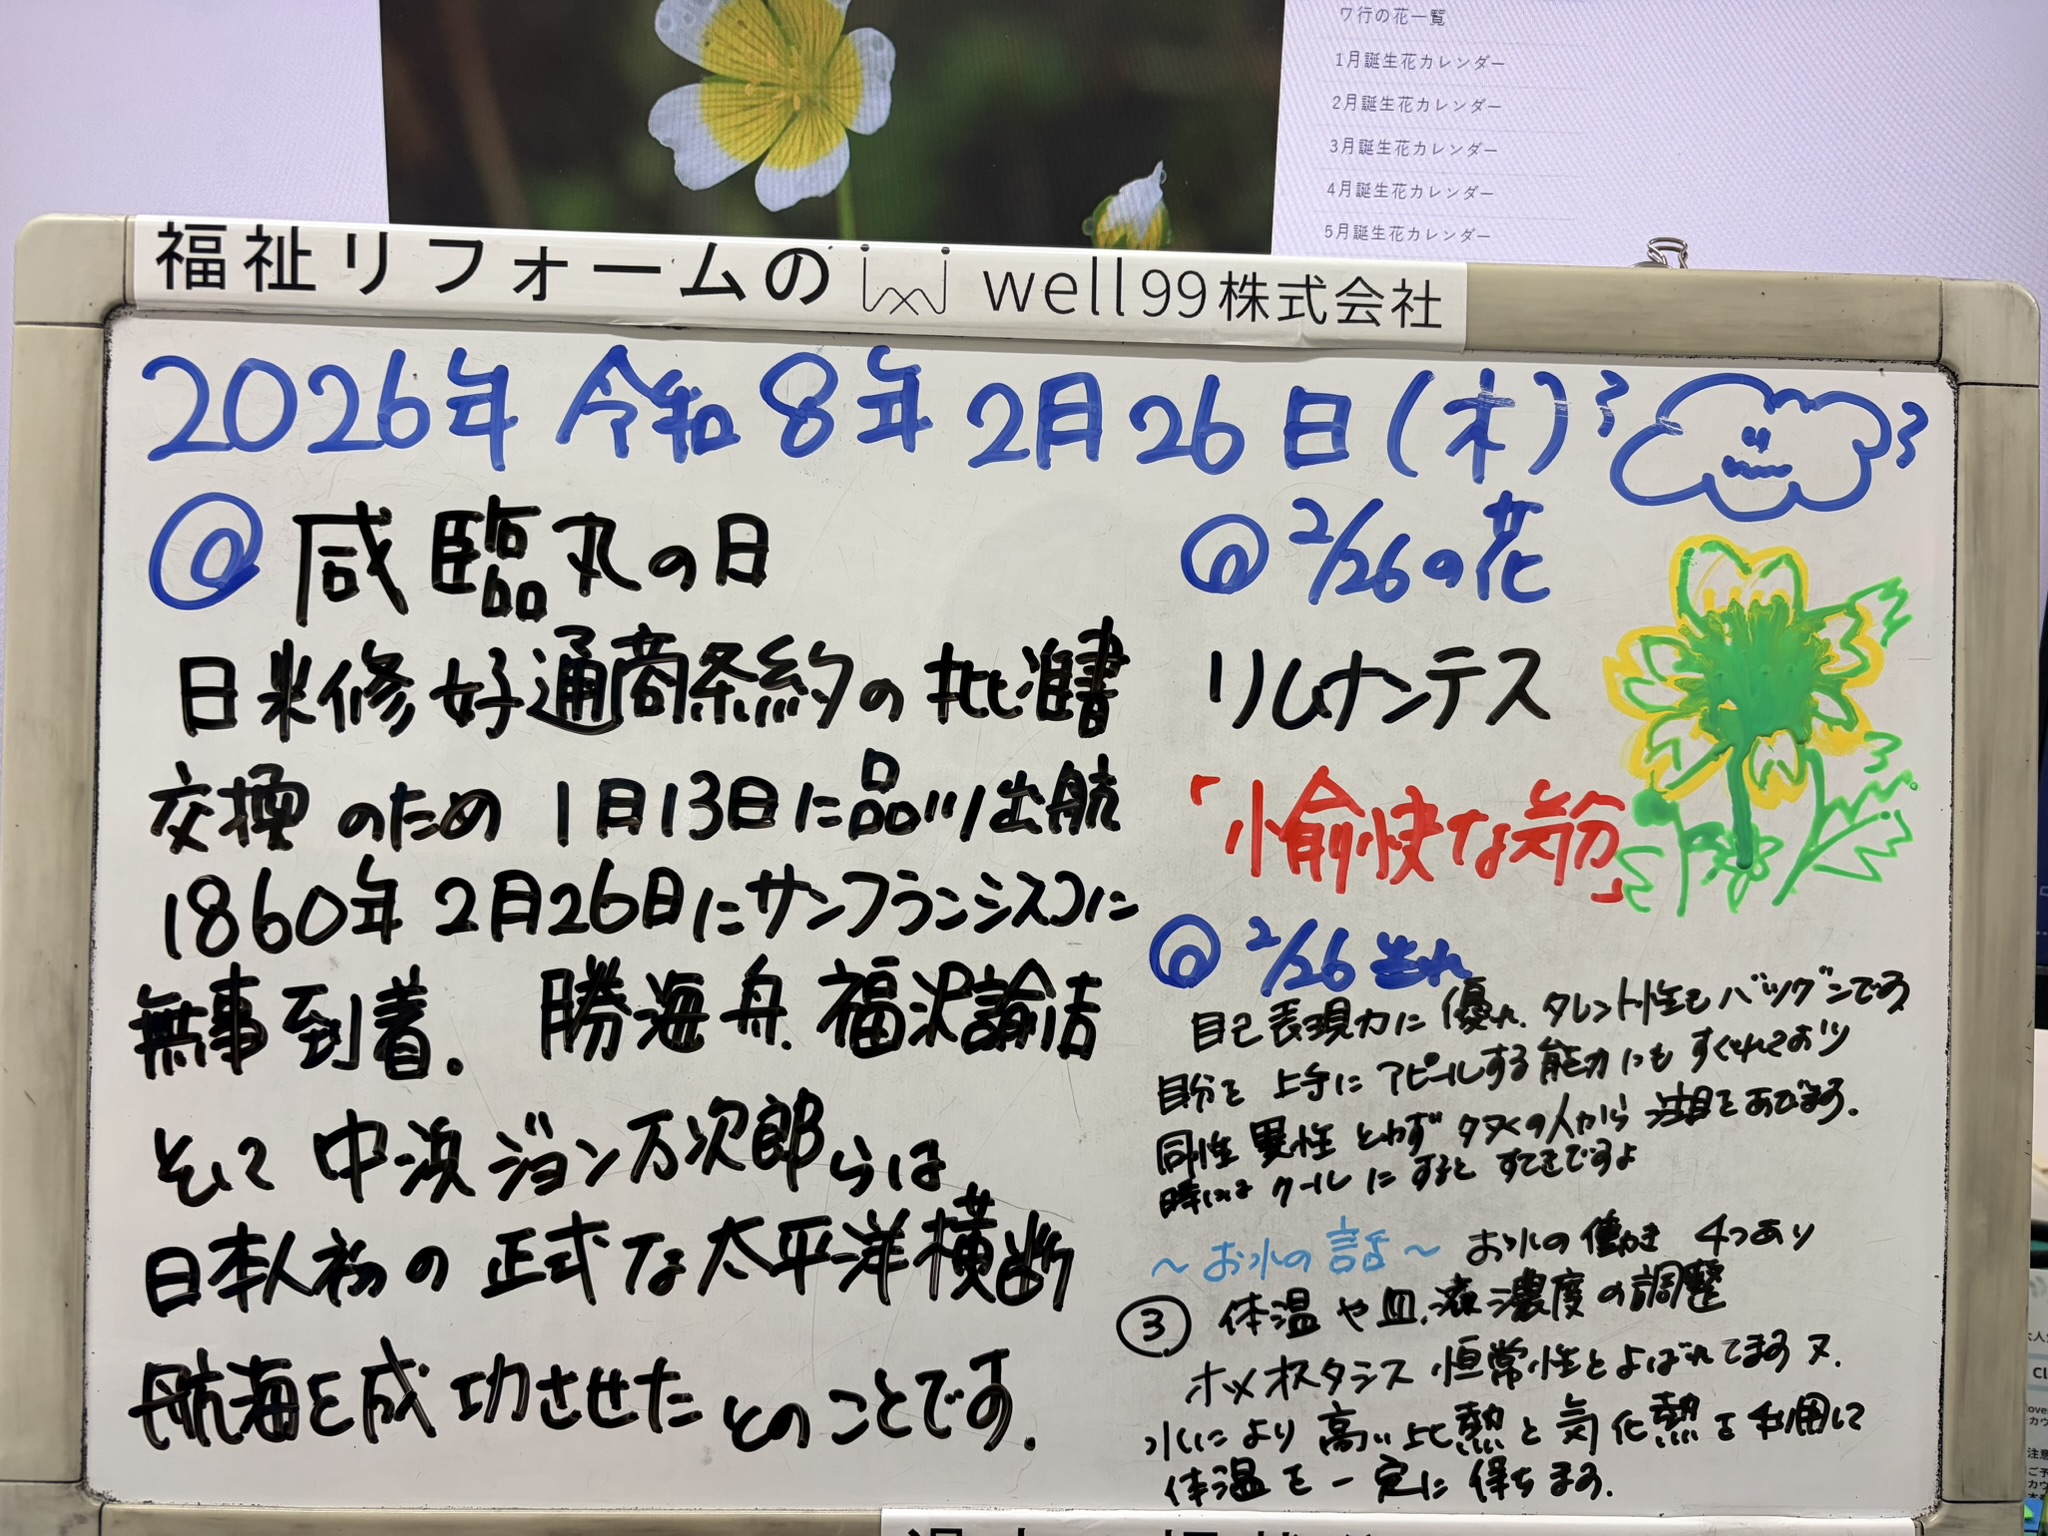 ワ行の花一覧
1月誕生花カレンダー
2月誕生花カレンダー
3月誕生花カレンダー
4月誕生花カレンダー
5月誕生花カレンダー
福祉リフォームの well99株式会社
2026年 令和8年 2月26日(木)
@ 咸臨丸の日
日米修好通商条約の批准書
交換のため 1月13日に品川出航
1860年 2月26日にサンフランシスコに
無事到着. 勝海舟. 福沢諭吉
そして 中浜ジョン万次郎らは
日本人初の正式な太平洋横断
航海を成功させたとのことです.
@ 2/26の花
リムナンテス
「愉快な気分」
@ 2/26生れ
自己表現力に優れ、タレント性もバツグンです
自分を上手にアピールする能力にもすぐれており
同性異性とわず多くの人から注目をあびます.
時にはクールにするとすてきですよ
～お水の話～ お水の働き 4つあり
③ 体温や血液濃度の調整
ホメオスタシス 恒常性とよばれてます
水により高い比熱と気化熱を利用して
体温を一定に保ちます.